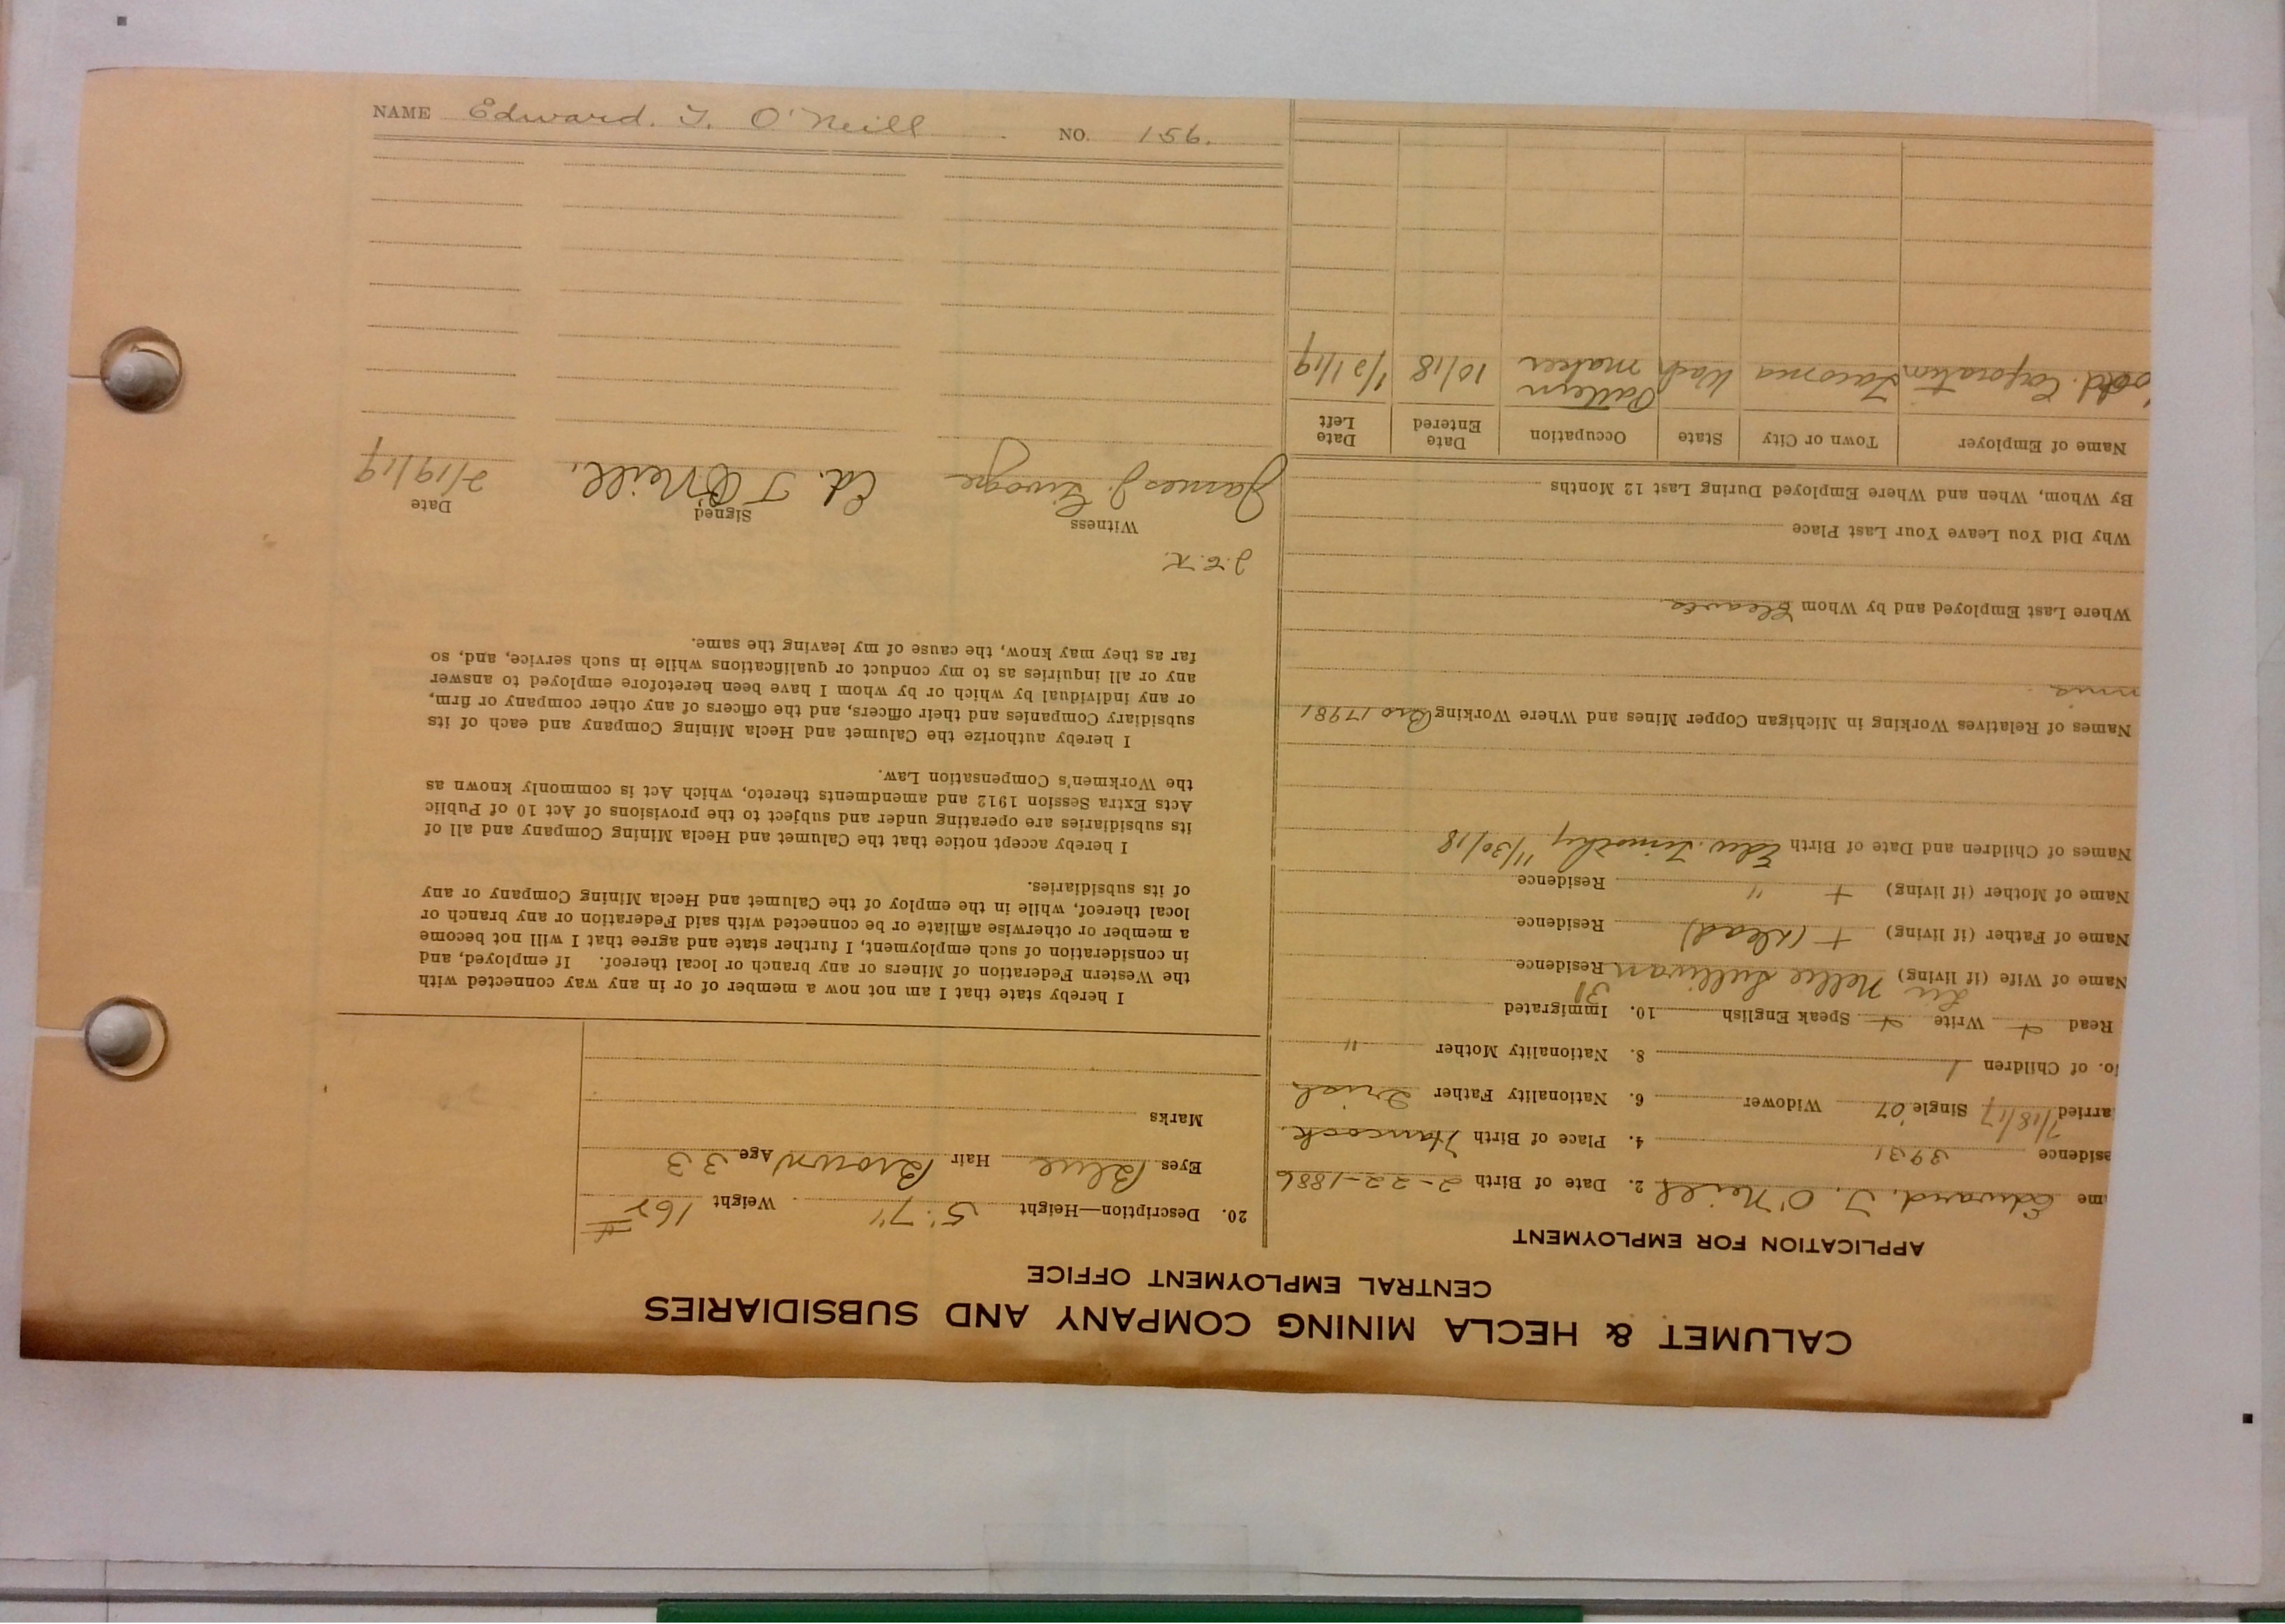 CALUMET & HECLA MINING COMPANY AND SUBSIDIARIES
CENTRAL EMPLOYMENT OFFICE
APPLICATION FOR EMPLOYMENT
me Edward. T. O'Neill 2. Date of Birth 2-22-1886
esidence 3931 4. Place of Birth Hancock.
arried 7/18/17 Single '07 Widower 6. Nationality Father Irish
o. of Children 1 8. Nationality Mother "
Read + Write + Speak English 10. Immigrated
Name of Wife (if living) Nellie Sullivan 31 Residence
Name of Father (if living) + (dead) Residence
Name of Mother (if living) + " Residence
Names of Children and Date of Birth Edw. Timothy 11/30/18
Names of Relatives Working in Michigan Copper Mines and Where Working Bro 17981
Where Last Employed and by Whom
Why Did You Leave Your Last Place
By Whom, When and Where Employed During Last 12 Months
Name of Employer Town or City State Occupation Date Entered Date Left
Corporation Tacoma Wash Pattern maker 10/18 1/31/19
20. Description—Height 5' 7" Weight 165 #
Eyes Blue Hair Brown Age 33
Marks
I hereby state that I am not now a member of or in any way connected with
the Western Federation of Miners or any branch or local thereof. If employed, and
in consideration of such employment, I further state and agree that I will not become
a member or otherwise affiliate or be connected with said Federation or any branch or
local thereof, while in the employ of the Calumet and Hecla Mining Company or any
of its subsidiaries.
I hereby accept notice that the Calumet and Hecla Mining Company and all of
its subsidiaries are operating under and subject to the provisions of Act 10 of Public
Acts Extra Session 1912 and amendments thereto, which Act is commonly known as
the Workmen's Compensation Law.
I hereby authorize the Calumet and Hecla Mining Company and each of its
subsidiary Companies and their officers, and the officers of any other company or firm,
or any individual by which or by whom I have been heretofore employed to answer
any or all inquiries as to my conduct or qualifications while in such service, and, so
far as they may know, the cause of my leaving the same.
Witness Signed Date
James J. Ed. T O'Neill. 2/19/19
NAME Edward. T. O'Neill NO. 156.